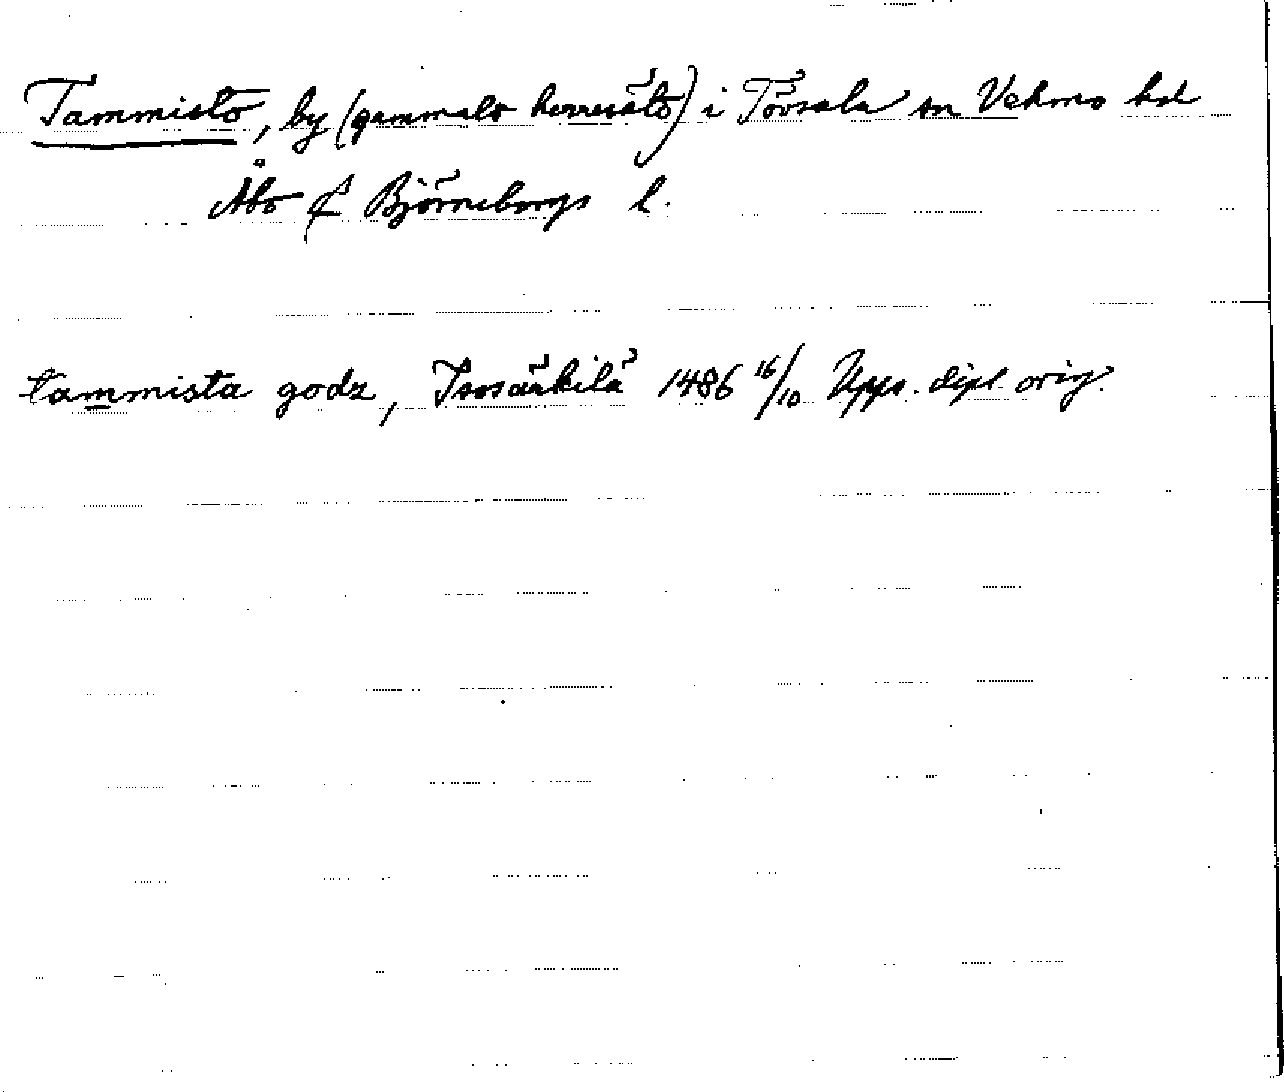 Tammisto, by (gammalt herresäte) i Tövsala sn Vehmo hd
Åbo & Björneborgs l.
tammista godz, Isosärkilä 1486 16/10 Upps. dipl. orig.